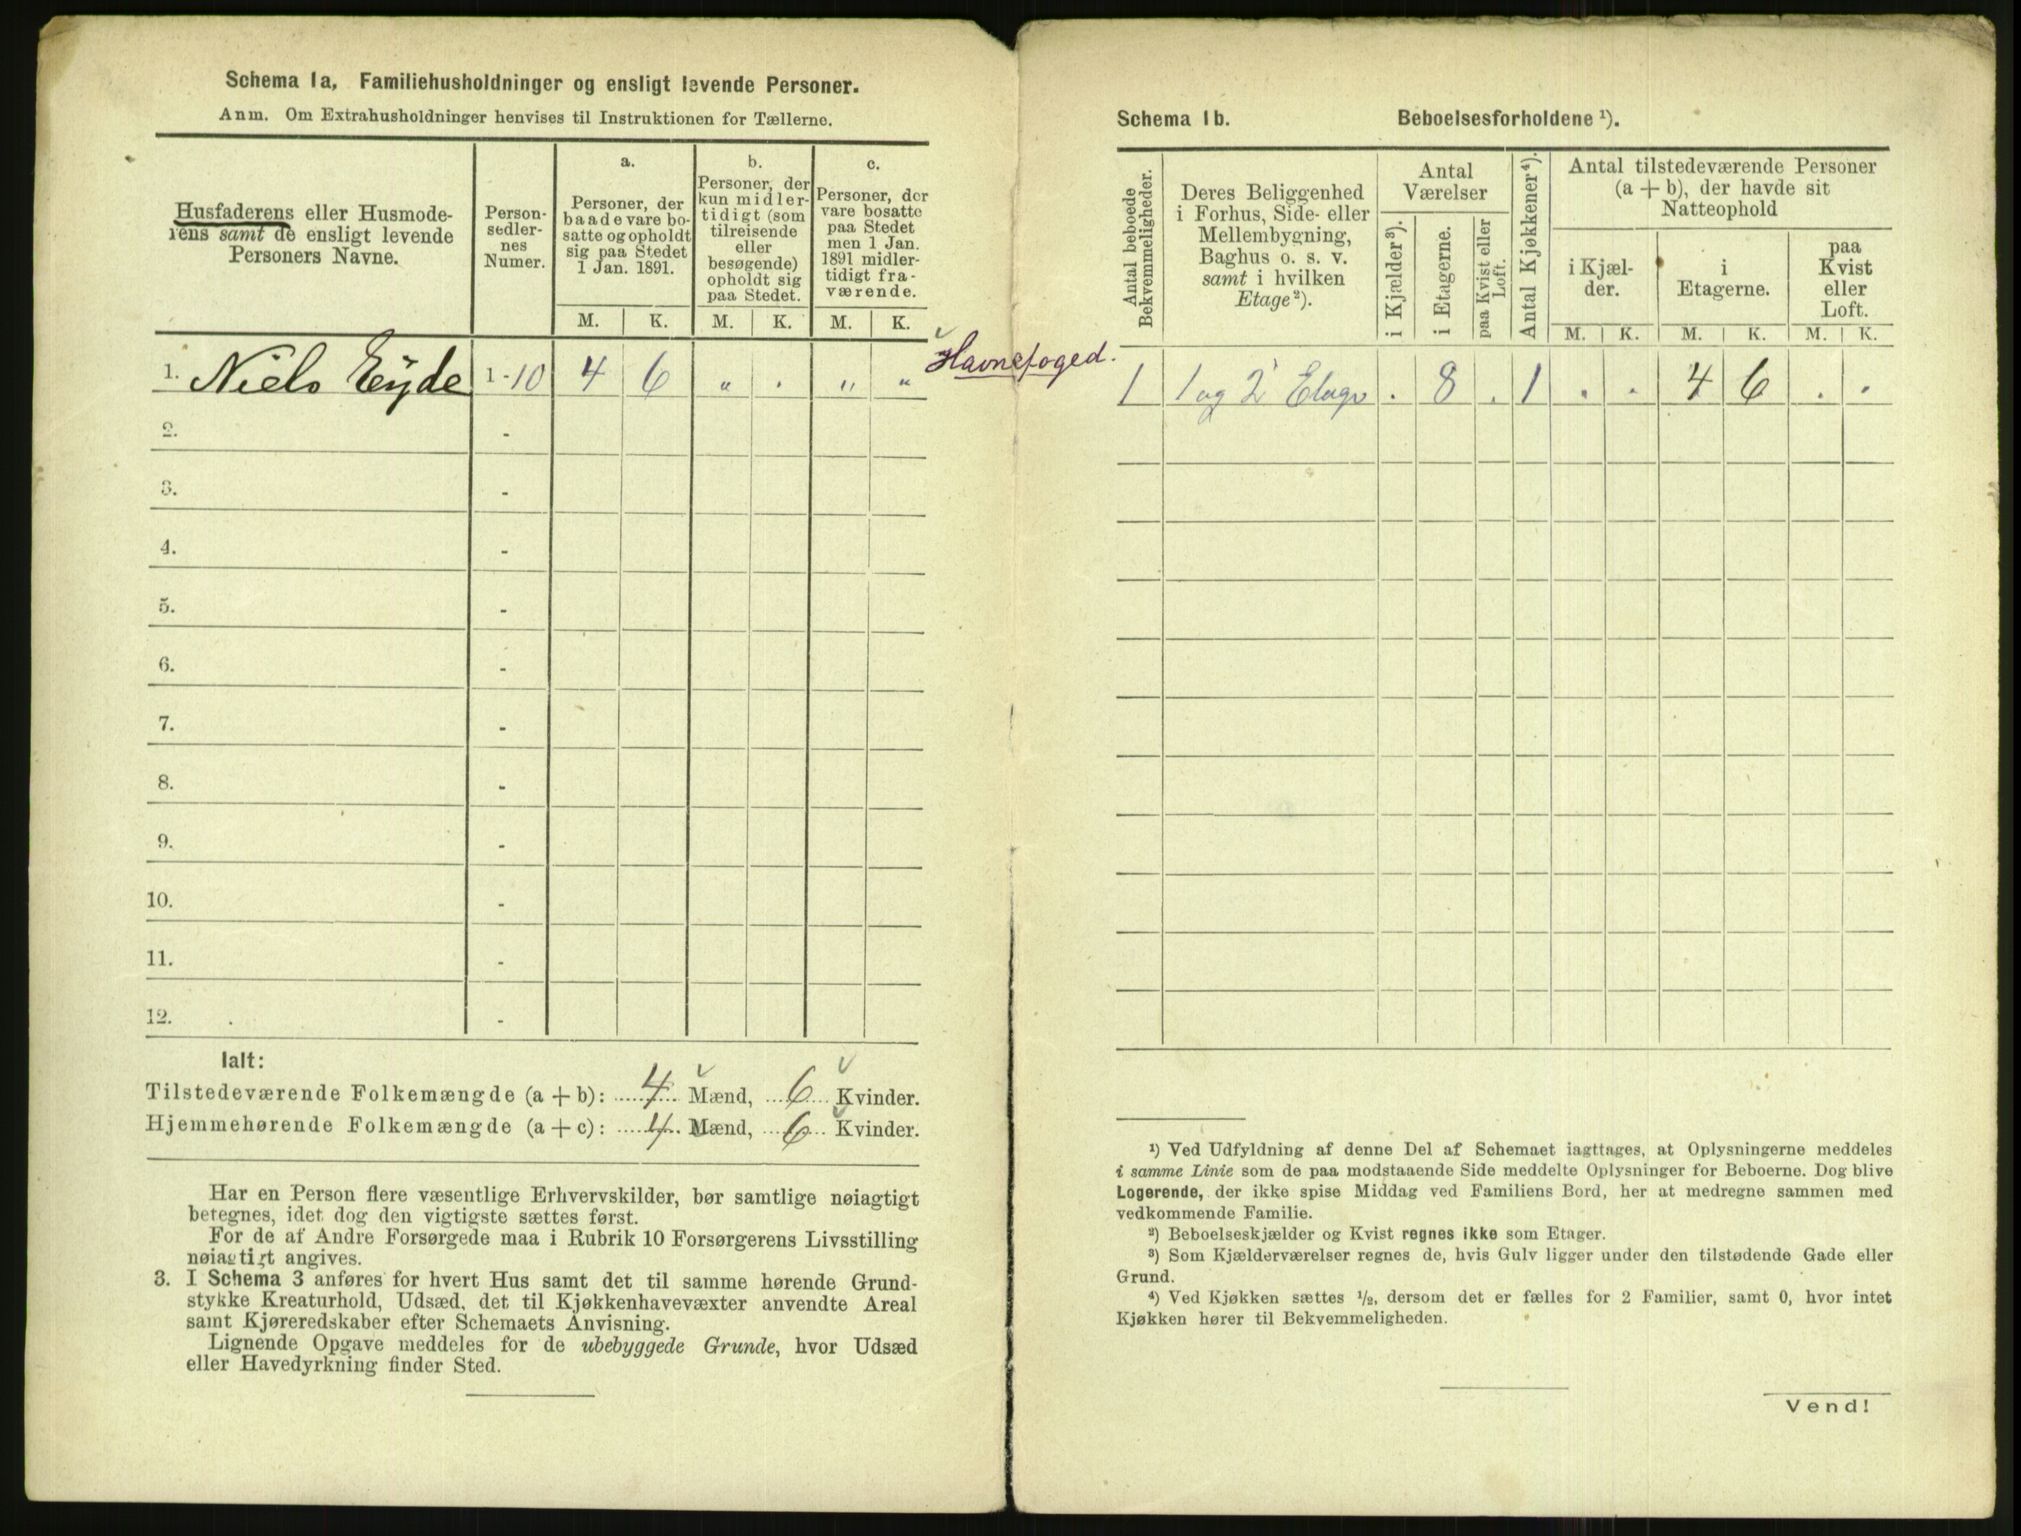 Schema 1a, Familiehusholdninger og ensligt levende Personer.
Anm. Om Extrahusholdninger henvises til Instruktionen for Tællerne.
Husfaderens eller Husmode-
rens samt de ensligt levende
Personers Navne.
Person-
sedler-
nes
Numer.
a.
Personer, der
baade vare bo-
satte og opholdt
sig paa Stedet
1 Jan. 1891.
b.
Personer, der
kun midler-
tidigt (som
tilreisende
eller
besøgende)
opholdt sig
paa Stedet.
c.
Personer, der
vare bosatte
paa Stedet
men 1 Jan.
1891 midler-
tidigt fra-
værende.
M. K. M. K. M. K.
1. Niels Eyde 1-10 4 6 " . " " Havnefoged.
2. -
3. -
4. -
5. -
6. -
7. -
8. -
9. -
10. -
11. -
12. -
Ialt:
Tilstedeværende Folkemængde (a + b): 4 Mænd, 6 Kvinder.
Hjemmehørende Folkemængde (a + c): 4 Mænd, 6 Kvinder.
Har en Person flere væsentlige Erhvervskilder, bør samtlige nøiagtigt
betegnes, idet dog den vigtigste sættes først.
For de af Andre Forsørgede maa i Rubrik 10 Forsørgerens Livsstilling
nøiagtigt angives.
3. I Schema 3 anføres for hvert Hus samt det til samme hørende Grund-
stykke Kreaturhold, Udsæd, det til Kjøkkenhavevæxter anvendte Areal
samt Kjøreredskaber efter Schemaets Anvisning.
Lignende Opgave meddeles for de ubebyggede Grunde, hvor Udsæd
eller Havedyrkning finder Sted.
Schema 1b. Beboelsesforholdene ¹).
Antal beboede
Bekvemmeligheder.
Deres Beliggenhed
i Forhus, Side- eller
Mellembygning,
Baghus o. s. v.
samt i hvilken
Etage ²).
Antal
Værelser
i Kjælder ³).
i Etagerne.
paa Kvist eller
Loft.
Antal Kjøkkener ⁴).
Antal tilstedeværende Personer
(a + b), der havde sit
Natteophold
i Kjæl-
der.
i
Etagerne.
paa
Kvist
eller
Loft.
M. K. M. K. M. K.
1 1 og 2 Etage . 8 . 1 . . 4 6 . .
¹) Ved Udfyldning af denne Del af Schemaet iagttages, at Oplysningerne meddeles
i samme Linie som de paa modstaaende Side meddelte Oplysninger for Beboerne. Dog blive
Logerende, der ikke spise Middag ved Familiens Bord, her at medregne sammen med
vedkommende Familie.
²) Beboelseskjælder og Kvist regnes ikke som Etager.
³) Som Kjælderværelser regnes de, hvis Gulv ligger under den tilstødende Gade eller
Grund.
⁴) Ved Kjøkken sættes ½, dersom det er fælles for 2 Familier, samt 0, hvor intet
Kjøkken hører til Bekvemmeligheden.
Vend!